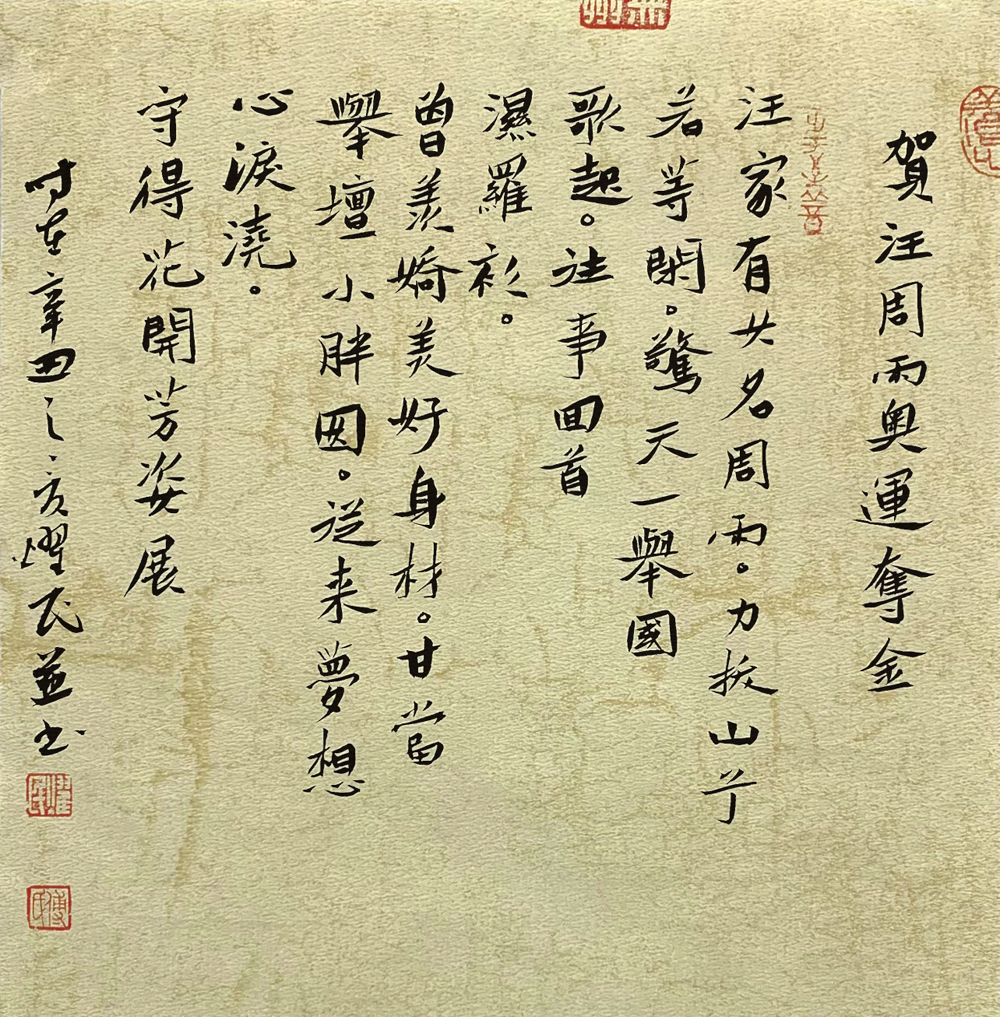 賀汪周雨奧運奪金
汪家有女名周雨。力拔山兮
若等閑。驚天一舉國
歌起。往事回首
濕羅衫。
曾羨嬌美好身材。甘當
舉壇小胖囡。從来夢想
心淚澆。
守得花開芳姿展
时在辛丑之夏燿民並书